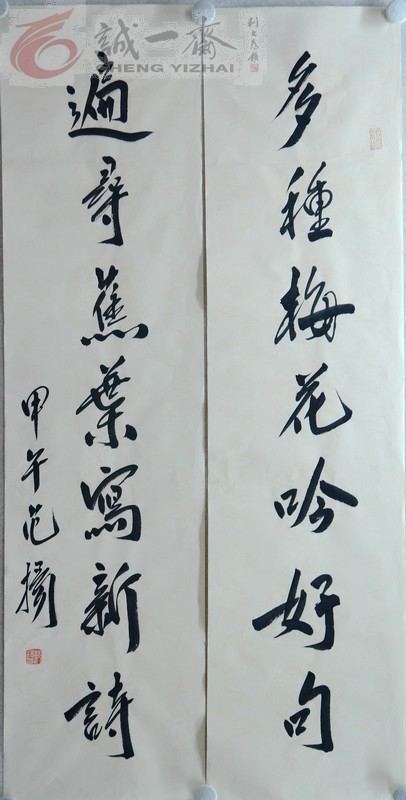 誠一齋
CHENG YIZHAI
多種梅花吟好句
遍尋蕉葉寫新詩
甲午范